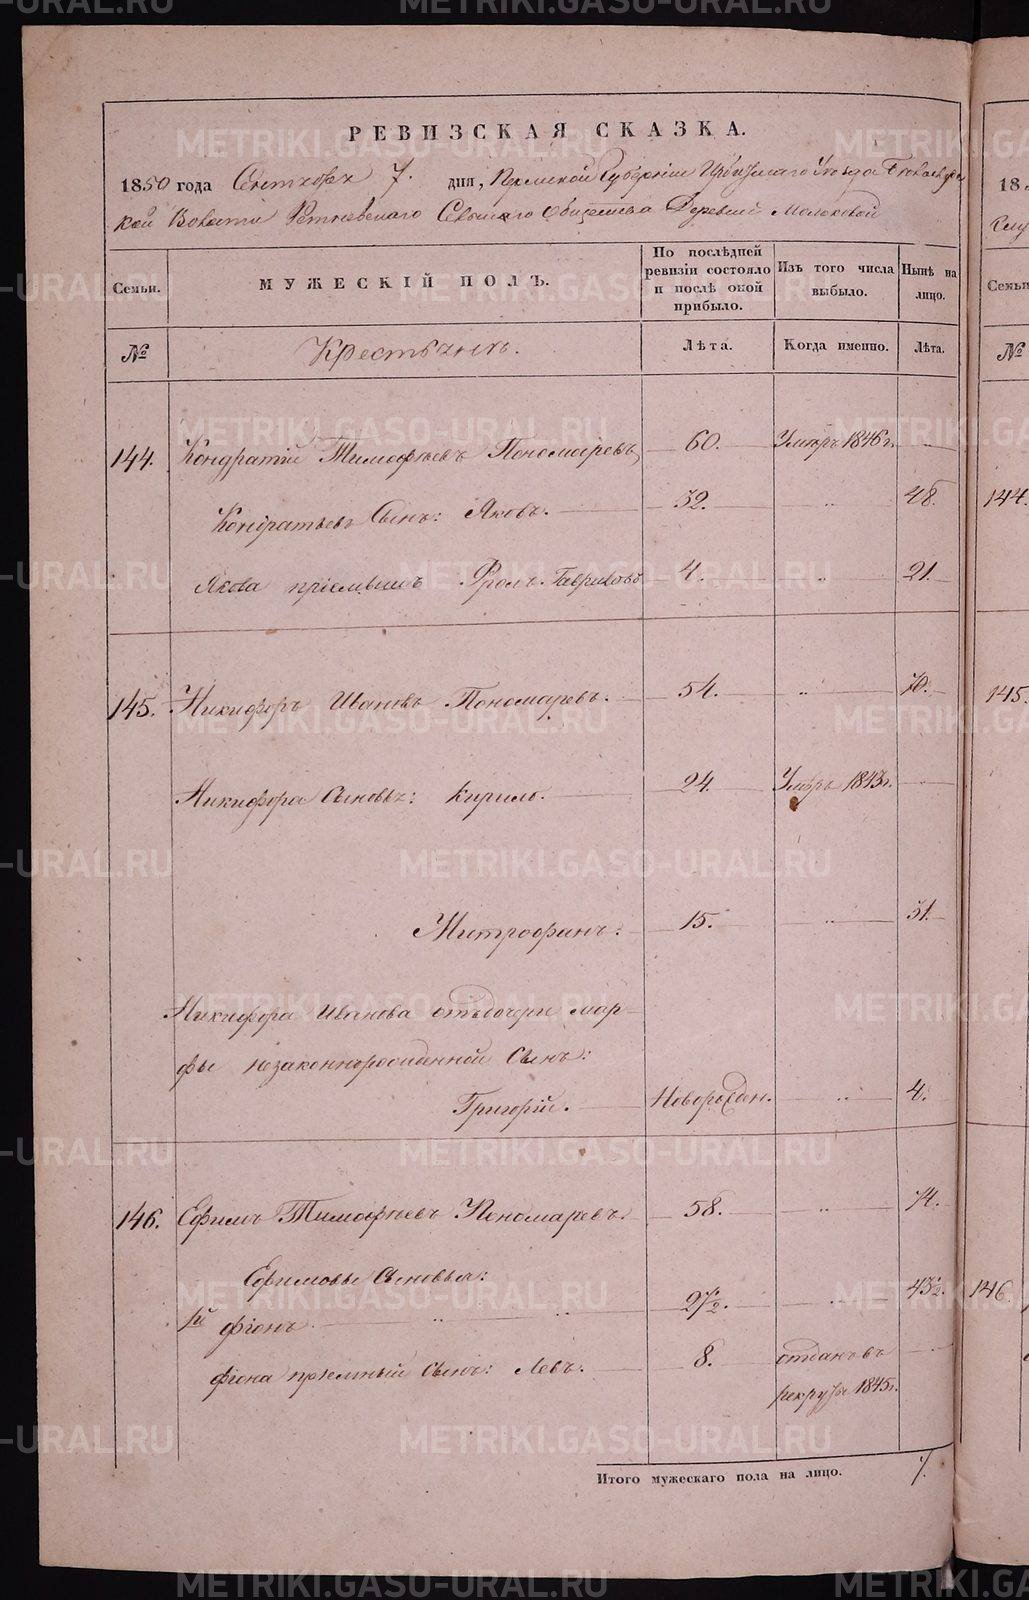 РЕВИЗСКАЯ СКАЗКА.
1850 года Сентября 7. дня, Пермской Губерніи Ирбитскаго Уѣзда
кой Волости Сельскаго общества Деревни Молоковой
Семьи.
МУЖЕСКІЙ ПОЛЪ.
По послѣдней ревизіи состояло и послѣ оной прибыло.
Изъ того числа выбыло.
Нынѣ на лицо.
№
Крестьянъ.
Лѣта.
Когда именно.
Лѣта.
144. Кондратій Тимофѣевъ Пономаревъ, 60. Умеръ 1846 г.
Кондратьевъ Сынъ: Яковъ. 32. „ 48.
Якова пріемышъ Фролъ Гавриловъ 4. „ 21.
145. Никифоръ Ивановъ Пономаревъ. 54. „ 70.
Никифора Сыновья: Кирило. 24. Умеръ 1843 г.
Митрофанъ. 15. „ 31.
Никифора Иванова отъ дочери Мар-
фы незаконнорожденной Сынъ:
Григорій. Новорожден. „ 4.
146. Ефимъ Тимофѣевъ Пономаревъ. 58. „ 74.
Ефимовы Сыновья:
1й Фіонъ. „ „ 27½. „ 43½.
Фіона пріемный Сынъ: Левъ. 8. отданъ въ
рекруты 1845 г.
Итого мужескаго пола на лицо. 7.
185
№
144.
145.
146.
METRIKI.GASO-URAL.RU